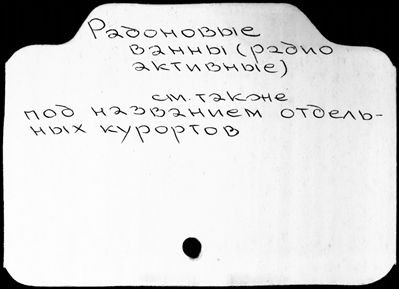 Радоновые
ванны (радио
активные)
см. также
под названием отдель-
ных курортов